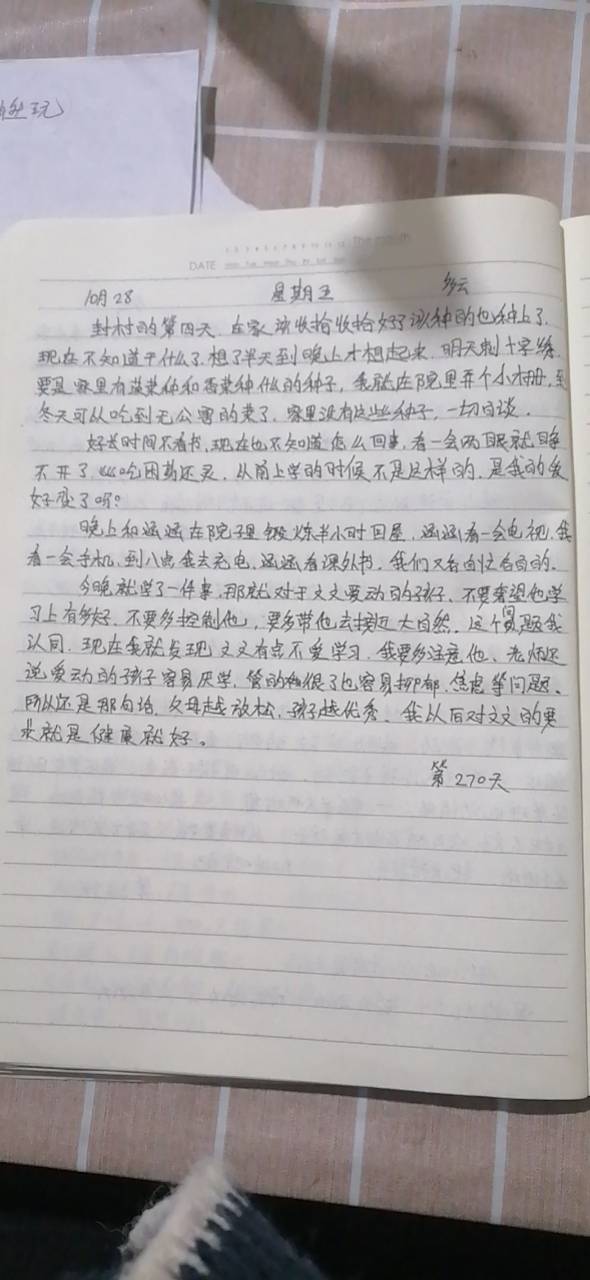 性玩
The month
DATE
10月28 星期五 多云
封村的第四天,在家该收拾收拾好了该种的也种上了,
现在不知道干什么了,想了半天到晚上才想起来,明天刺十字绣,
要是家里有菠菜种和香菜种什么的种子,我就在院里弄个小棚,到
冬天可以吃到无公害的菜了,家里没有这些种子,一切白谈。
好长时间不看书,现在也不知道怎么回事,看一会两眼就睁
不开了 比吃困药还灵,从前上学的时候不是这样的,是我的爱
好变了吗?
晚上和涵涵在院子里锻炼半小时回屋,涵涵看一会电视,我
看一会手机,到八点我去充电,涵涵看课外书,我们又各自忙各自的。
今晚就学了一件事,那就对于文文爱动的孩子,不要奢望他学
习上有多好,不要多控制他,要多带他去接近大自然,这个问题我
认同,现在我就发现文文有点不爱学习,我要多注意他、老师还
说爱动的孩子容易厌学,管的狠了也容易抑郁、焦虑等问题。
所以还是那句话,父母越放松,孩子越优秀、我以后对文文的要
求就是健康就好。
第270天